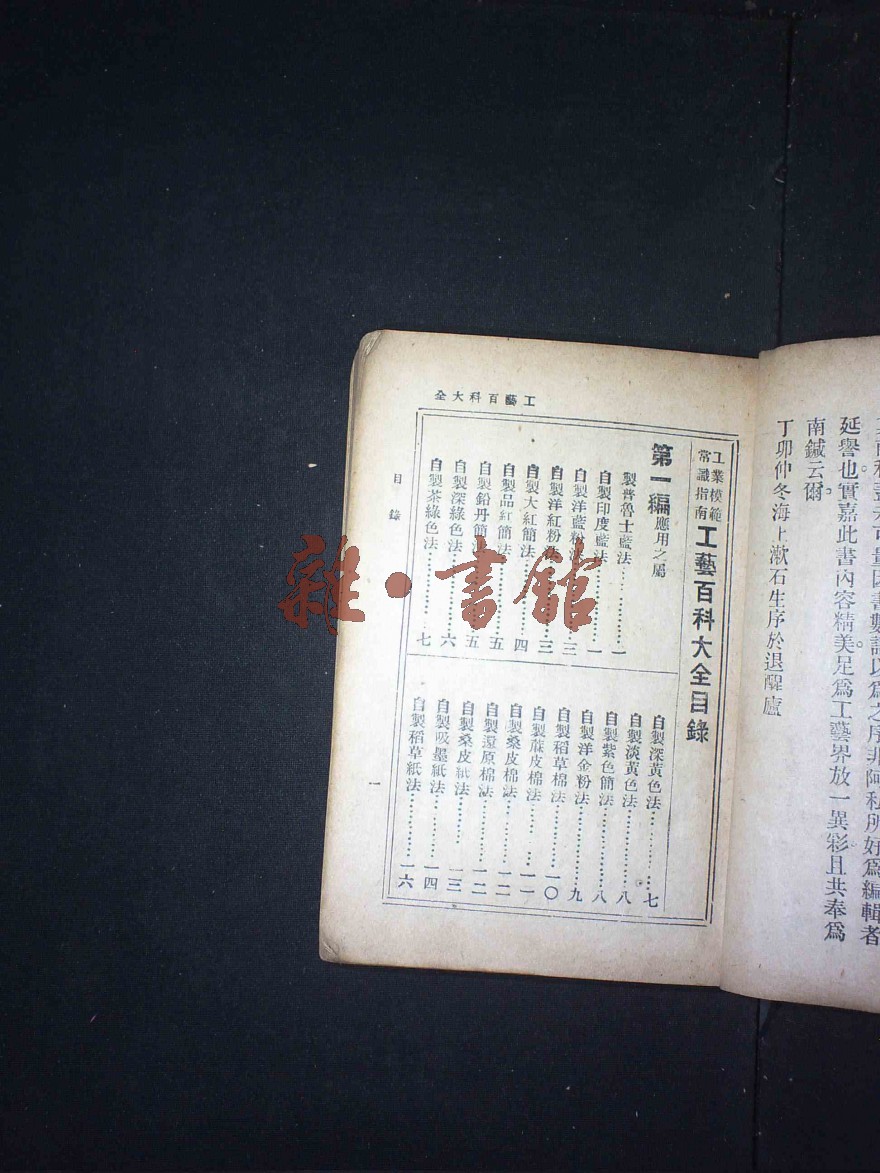 延譽也實嘉此書內容精美足爲工藝界放一異彩且共奉爲
南鍼云爾
丁卯仲冬海上漱石生序於退醒廬
工藝百科大全
工業模範
常識指南
工藝百科大全目錄
第一編應用之屬
製普魯士藍法…………一
自製印度藍法…………一
自製洋藍粉法…………三
自製洋紅粉法…………三
自製大紅簡法…………四
自製品紅簡法…………五
自製鉛丹簡法…………五
自製深綠色法…………六
自製茶綠色法…………七
自製深黃色法…………七
自製淡黃色法…………八
自製紫色簡法…………八
自製洋金粉法…………九
自製稻草棉法…………一〇
自製蔴皮棉法…………一一
自製桑皮棉法…………一二
自製還原棉法…………一二
自製桑皮紙法…………一三
自製吸墨紙法…………一四
自製稻草紙法…………一六
目錄
一
雜·書館